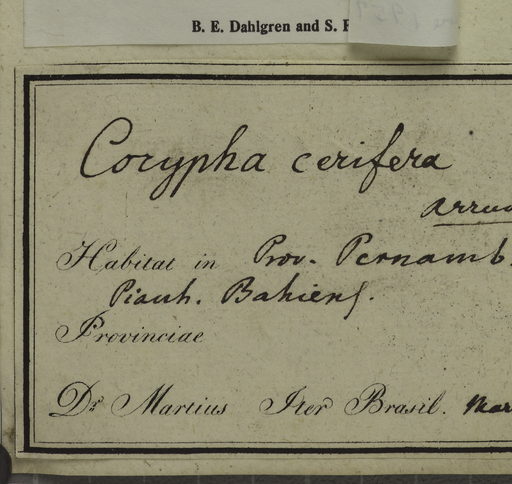 B. E. Dahlgren and S. F
Corypha cerifera
Arrud
Habitat in Prov. Pernamb.
Piauh. Bahiens.
Provinciae
Dr. Martius Iter Brasil. Mar